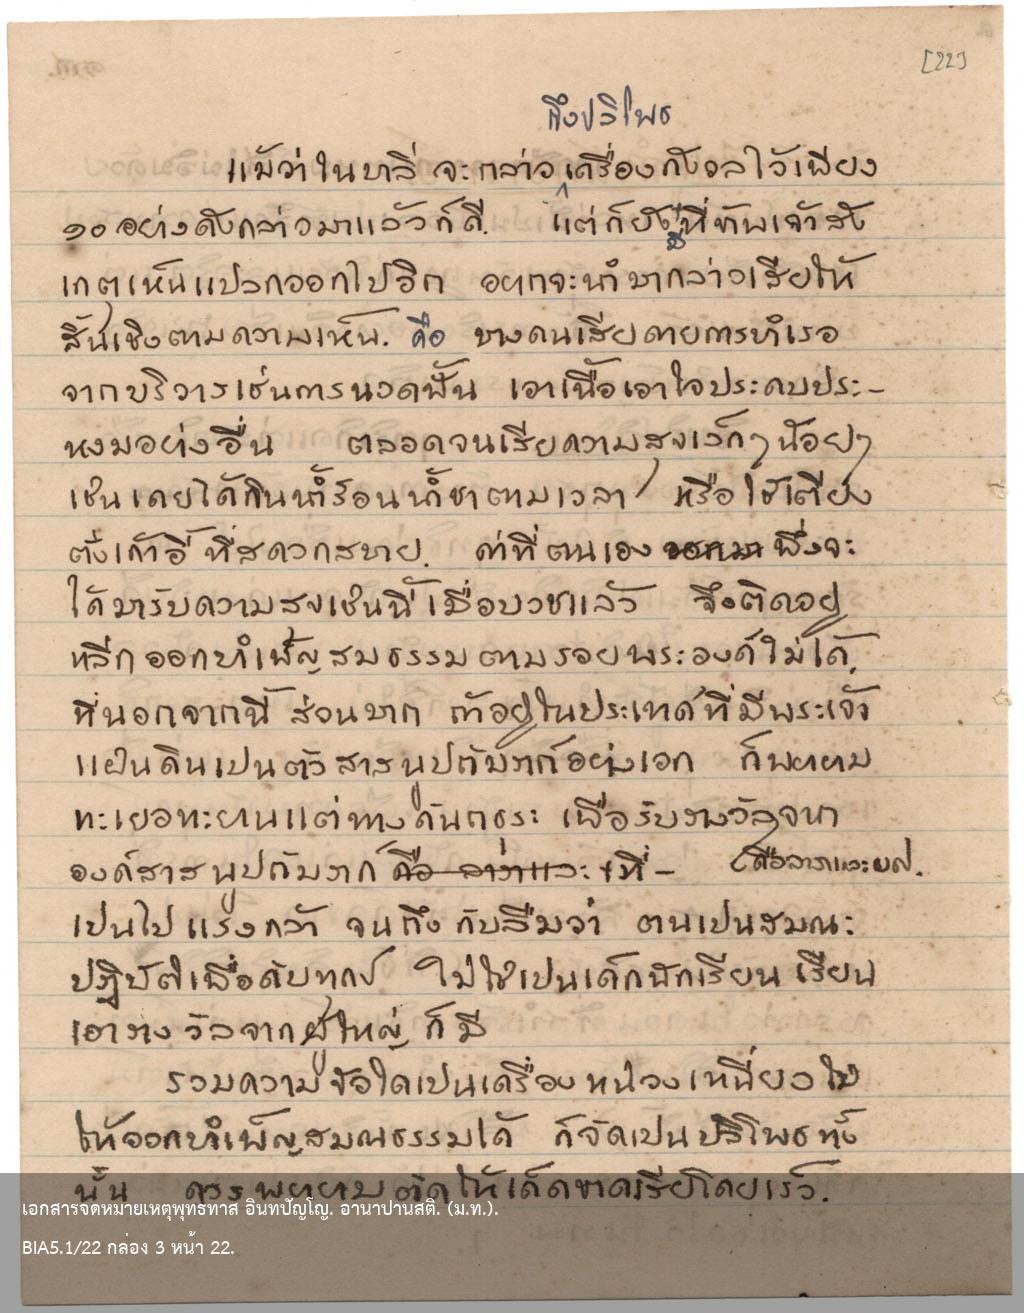 [22]
ถึงปลิโพธ
แม้ว่าในบาลี จะกล่าวเครื่องกังวลไว้เพียง
๑๐ อย่างดังกล่าวมาแล้วก็ดี. แต่ก็ยังมีที่ข้าพเจ้าสัง
เกตเห็นแปลกออกไปอีก อยากจะนำมากล่าวเสียให้
สิ้นเชิงตามความเห็น. คือ บางคนเสียดายการบำเรอ
จากบริวารเช่นการนวดฟั้น เอาเนื้อเอาใจประคบประ-
หงมอย่างอื่น ตลอดจนเสียความสุขเล็กๆ น้อยๆ
เช่นเคยได้กินน้ำร้อนน้ำชาตามเวลา หรือใช้เตียง
ตั่งเก้าอี้ ที่สดวกสบาย. ค่าที่ตนเอง พึ่งจะ
ได้มารับความสุขเช่นนี้เมื่อบวชแล้ว จึงติดอยู่
หลีกออกบำเพ็ญสมธรรมตามรอยพระองค์ไม่ได้.
ที่นอกจากนี้ ส่วนมาก ถ้าอยู่ในประเทศที่มีพระเจ้า
แผ่นดินเปนตัวสาสนูปถัมภก์อย่างเอก ก็พยายาม
ทะเยอทะยานแต่ทางคันถธุระ เพื่อรับรางวัลจาก
องค์สาสนูปถัมภก์ คือ ลาภและ ที่-
(คือลาภและยศ.
เปนไปแรงกล้า จนถึงกับลืมว่า ตนเปนสมณะ
ปฏิบัติเพื่อดับทุกข์ ไม่ใช่เปนเด็กนักเรียน เรียน
เอารางวัลจากผู้ใหญ่ ก็มี
รวมความข้อใดเปนเครื่องหน่วงเหนี่ยวไม่
ให้ออกบำเพ็ญสมณธรรมได้ ก็จัดเปนปลิโพธทั้ง
นั้น ควรพยายามตัดให้เด็ดขาดเสียโดยเร็ว.
เอกสารจดหมายเหตุพุทธทาส อินทปัญโญ. อานาปานสติ. (ม.ท.).
BIA5.1/22 กล่อง 3 หน้า 22.